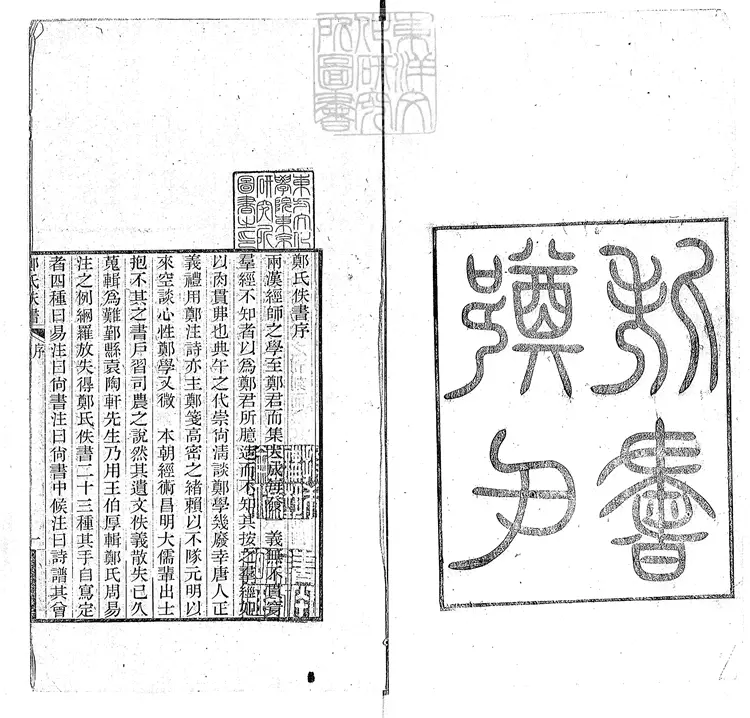 書
東洋文
化研究
所圖書
東方文化
學院東京
研究所
圖書之印
鄭氏佚書序
兩漢經師之學至鄭君而集大成每發一義無不貫穿
羣經不知者以爲鄭君所臆造而不知其按之羣經如
以肉貫丳也典午之代崇尙清談鄭學幾廢幸唐人正
義禮用鄭注詩亦主鄭箋高密之緒賴以不隊元明以
來空談心性鄭學又微　本朝經術昌明大儒輩出士
抱不其之書戶習司農之說然其遺文佚義散失已久
蒐輯爲難鄞縣袁陶軒先生乃用王伯厚輯鄭氏周易
注之例網羅放失得鄭氏佚書二十三種其手自寫定
者四種曰易注曰尙書注曰尙書中候注曰詩譜其曾
鄭氏佚書　序　一